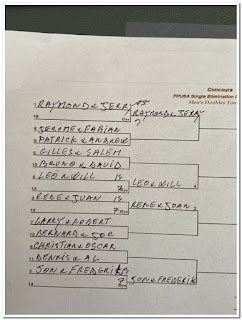 Concours
FPUSA Single Elimination
Men's Doubles
RAYMOND & JERRY
RAYMOND & JERRY
JEROME & FABIAN
PATRICK & ANDREW
GILLES & SALEM
BRUNO & DAVID
LEO & WILL 13
7 LEO & WILL
RENE & JUAN 13
7 RENE & JUAN
LARRY & ROBERT
BERNARD & JOE
CHRISTIAN & OSCAR
DENNIS & AL
JON & FREDERIK 13
7 JON & FREDERIK